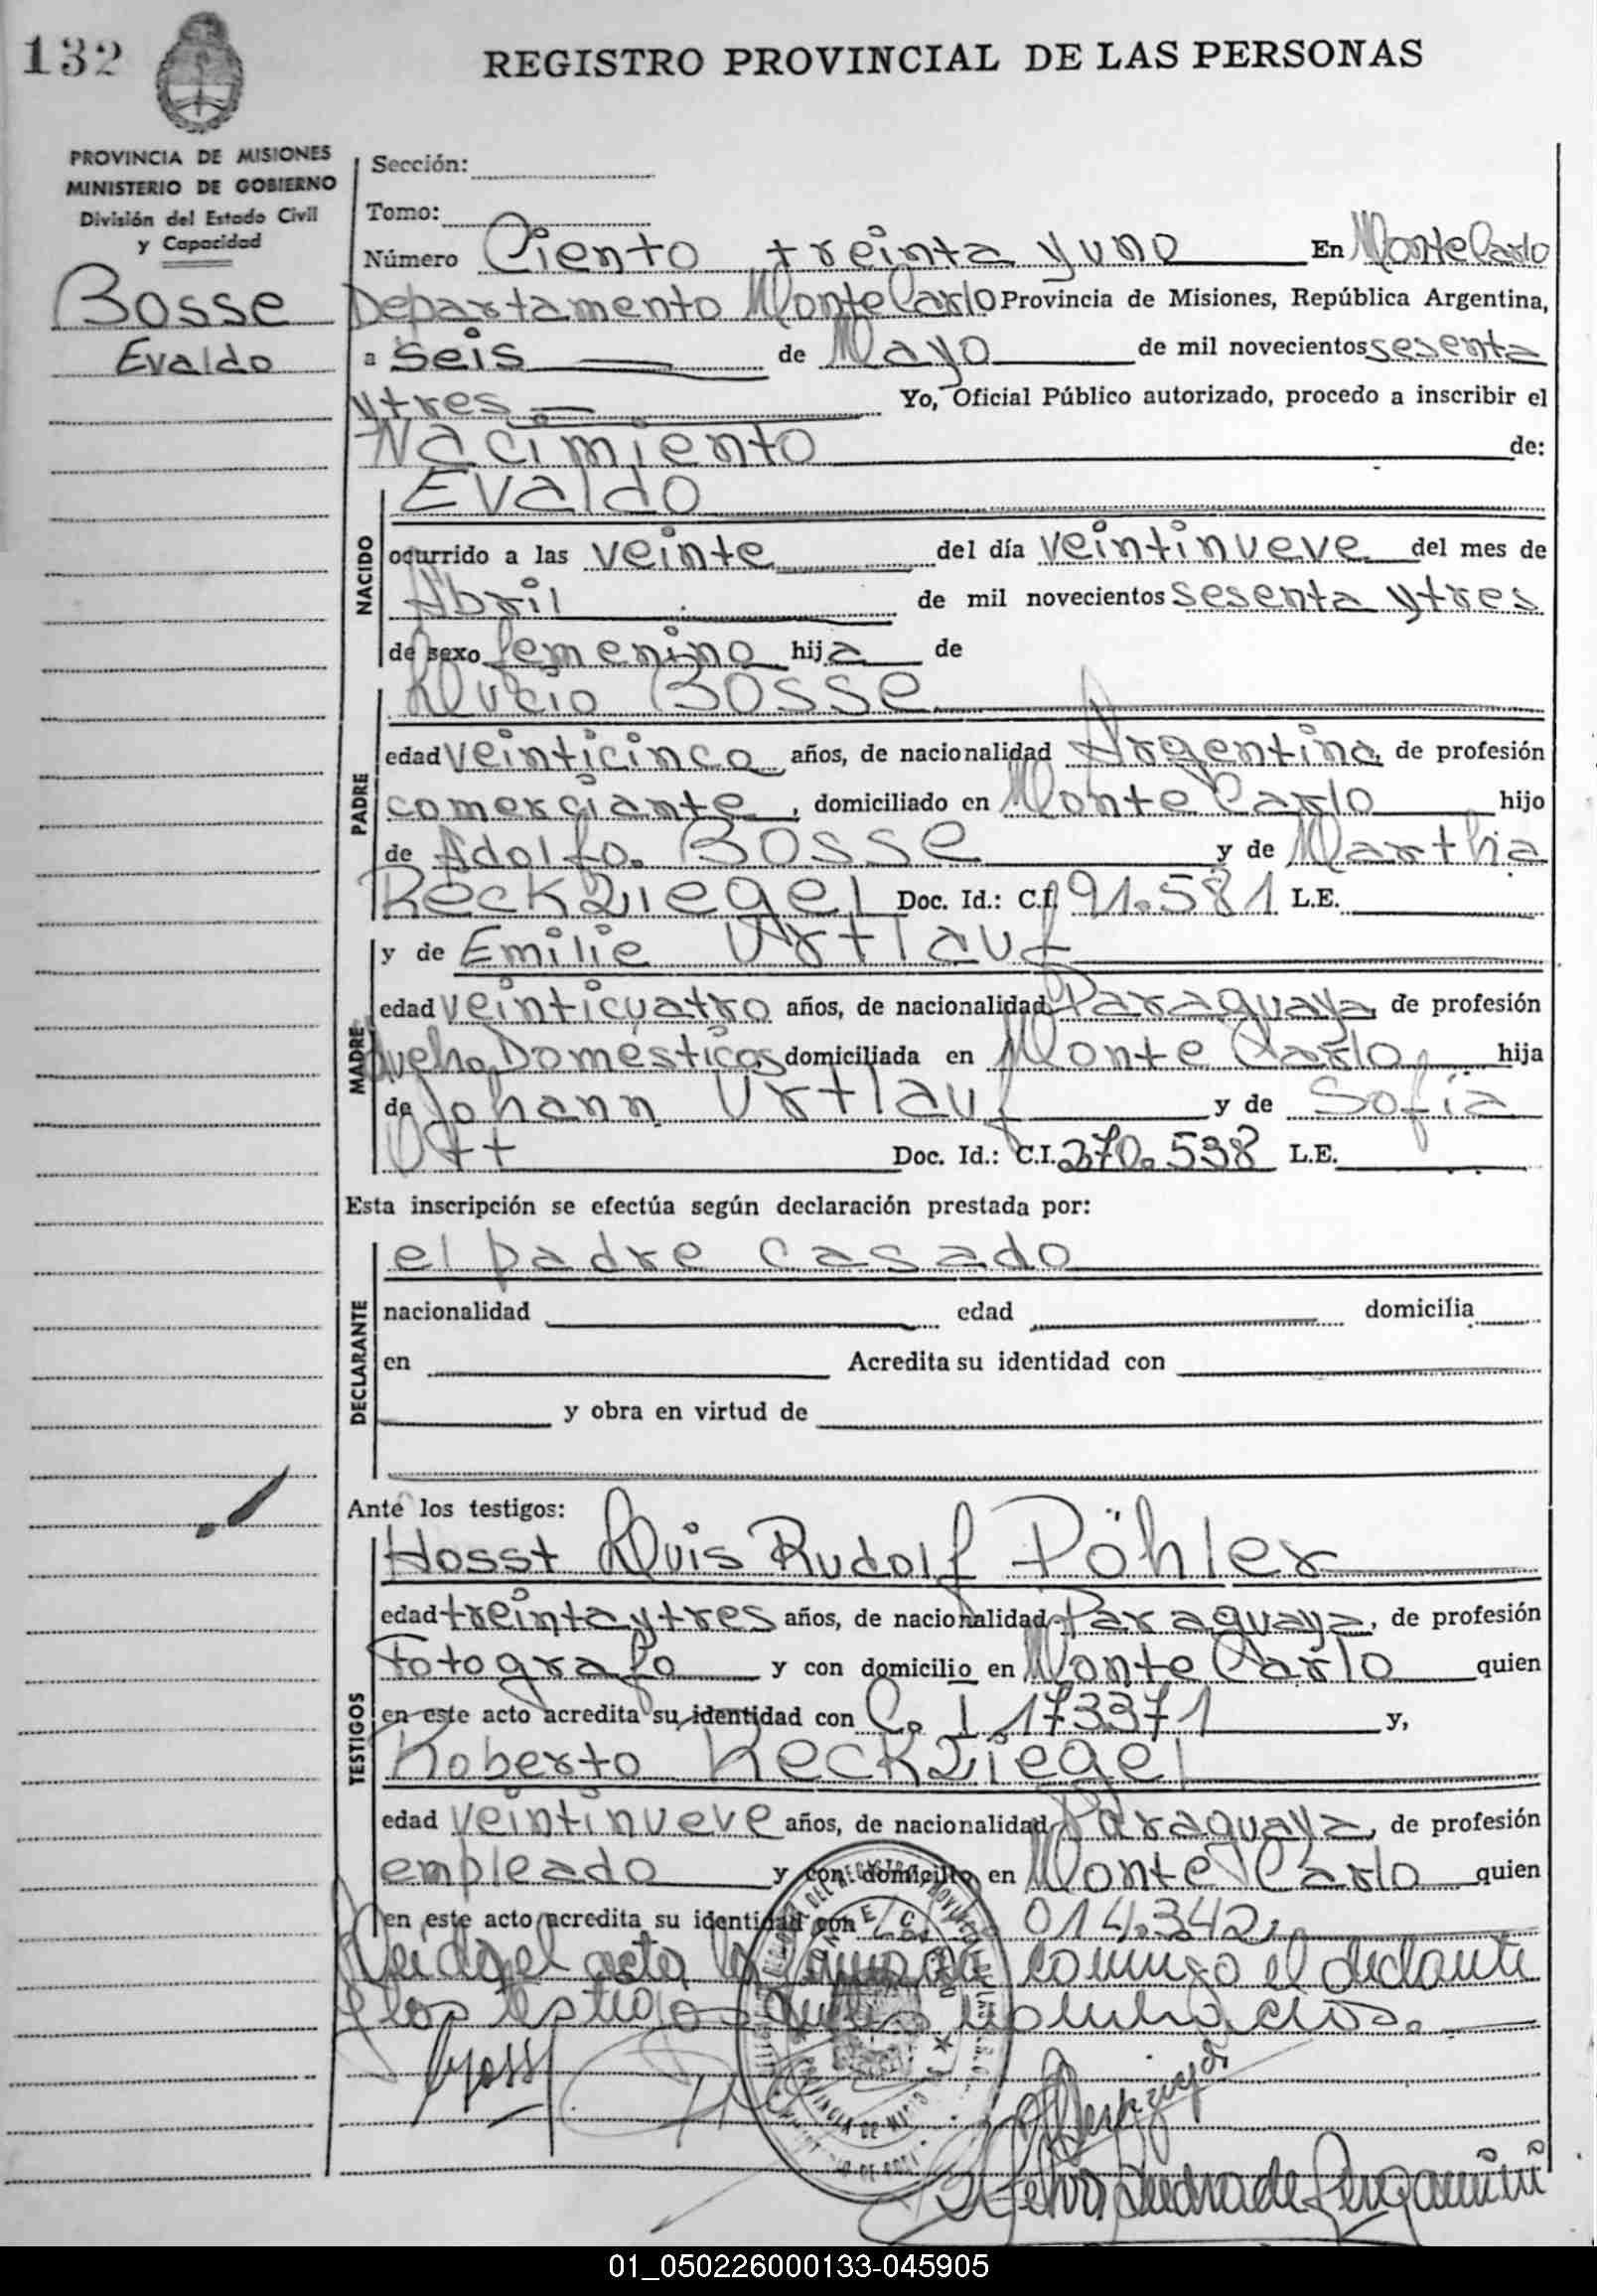 132
REGISTRO PROVINCIAL DE LAS PERSONAS
PROVINCIA DE MISIONES
MINISTERIO DE GOBIERNO
División del Estado Civil
y Capacidad
Bosse
Evaldo
Sección:
Tomo:
Número Ciento treinta y uno En Monte Carlo
Departamento Monte Carlo Provincia de Misiones, República Argentina,
a seis de Mayo de mil novecientos sesenta
y tres Yo, Oficial Público autorizado, procedo a inscribir el
Nacimiento de:
NACIDO
Evaldo
ocurrido a las veinte del día veintinueve del mes de
Abril de mil novecientos sesenta y tres
de sexo femenino hija de
PADRE
Lucio Bosse
edad veinticinco años, de nacionalidad Argentina, de profesión
comerciante, domiciliado en Monte Carlo hijo
de Adolfo Bosse y de Martha
Reckziegel Doc. Id.: C.I. 91.581 L.E.
MADRE
y de Emilie Urtlauf
edad veinticuatro años, de nacionalidad Paraguaya, de profesión
Domésticos domiciliada en Monte Carlo hija
de Johann Urtlauf y de Sofia
Ott Doc. Id.: C.I. 270.538 L.E.
Esta inscripción se efectúa según declaración prestada por:
DECLARANTE
el padre casado
nacionalidad edad domicilia
en Acredita su identidad con
y obra en virtud de
Ante los testigos:
TESTIGOS
Horst Luis Rudolf Pöhler
edad treinta y tres años, de nacionalidad Paraguaya, de profesión
Fotografo y con domicilio en Monte Carlo quien
en este acto acredita su identidad con C. I 173371 y,
Roberto Reckziegel
edad veintinueve años, de nacionalidad Paraguaya, de profesión
empleado y con domicilio en Monte Carlo quien
en este acto acredita su identidad con 014.342
Leida el acta la conmigo el declarante
y los testigos nombrados.
01_050226000133-045905